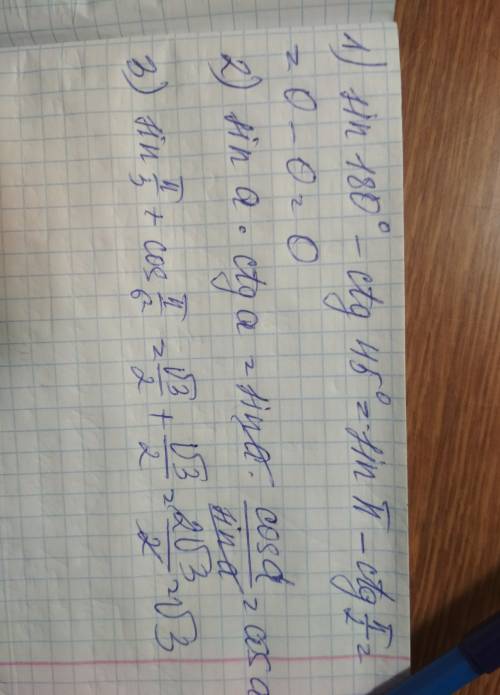 1) sin 180° - ctg 45° = sin π - ctg π/2 =
= 0 - 0 = 0
2) sin α · ctg α = sin α · cos α / sin α = cos α
3) sin π/3 + cos π/6 = √3/2 + √3/2 = 2√3/2 = √3